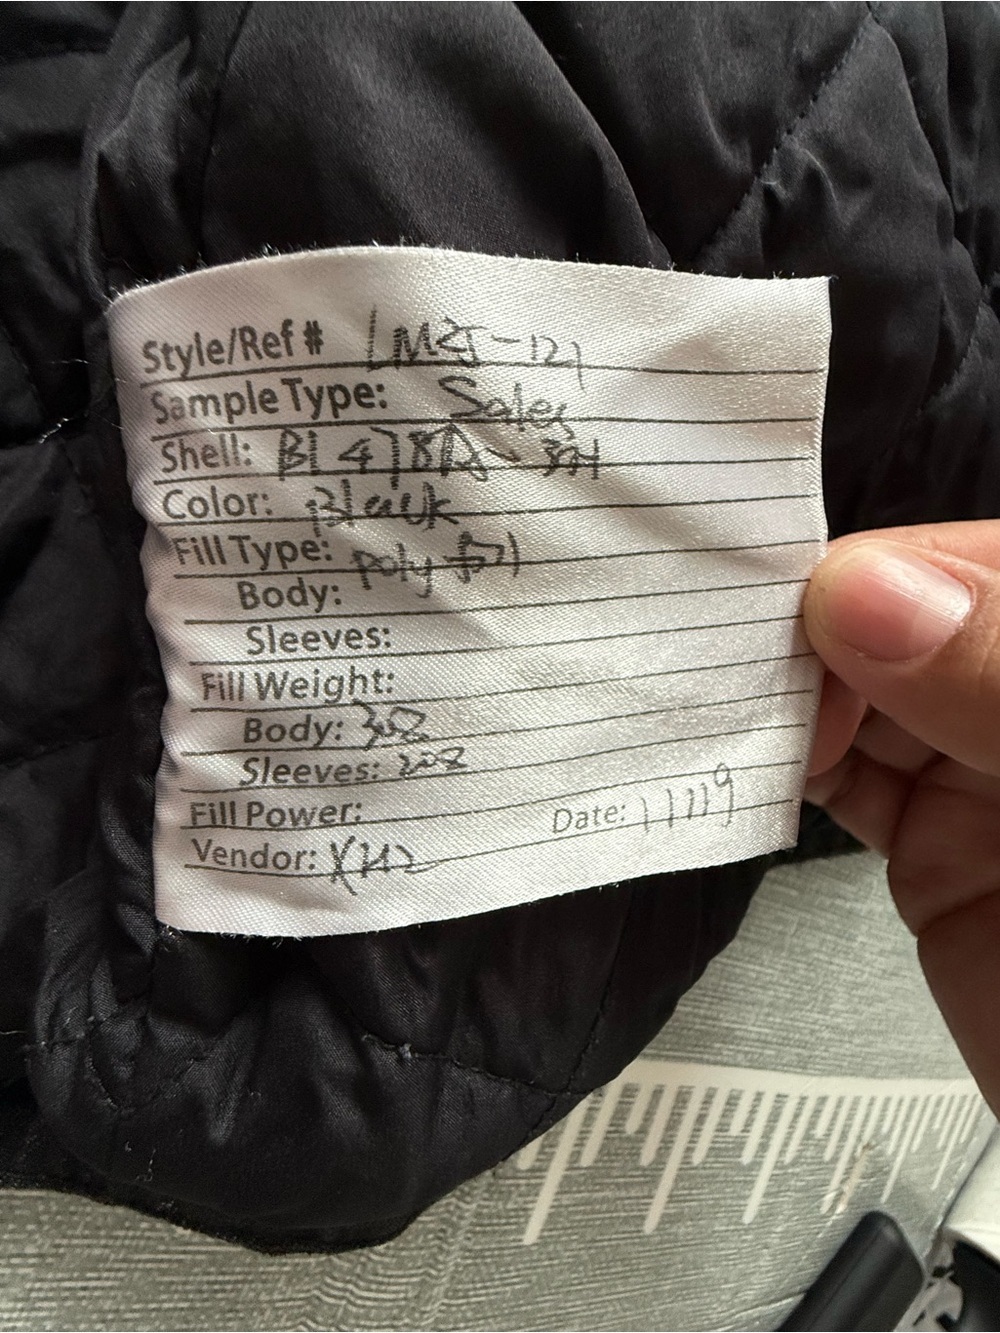 Style/Ref # LM25-121
Sample Type: Sales
Shell: 
Color: Black
Fill Type: Poly
Body:
Sleeves:
Fill Weight:
Body: 3oz
Sleeves: 2oz
Fill Power:
Date: 11119
Vendor: